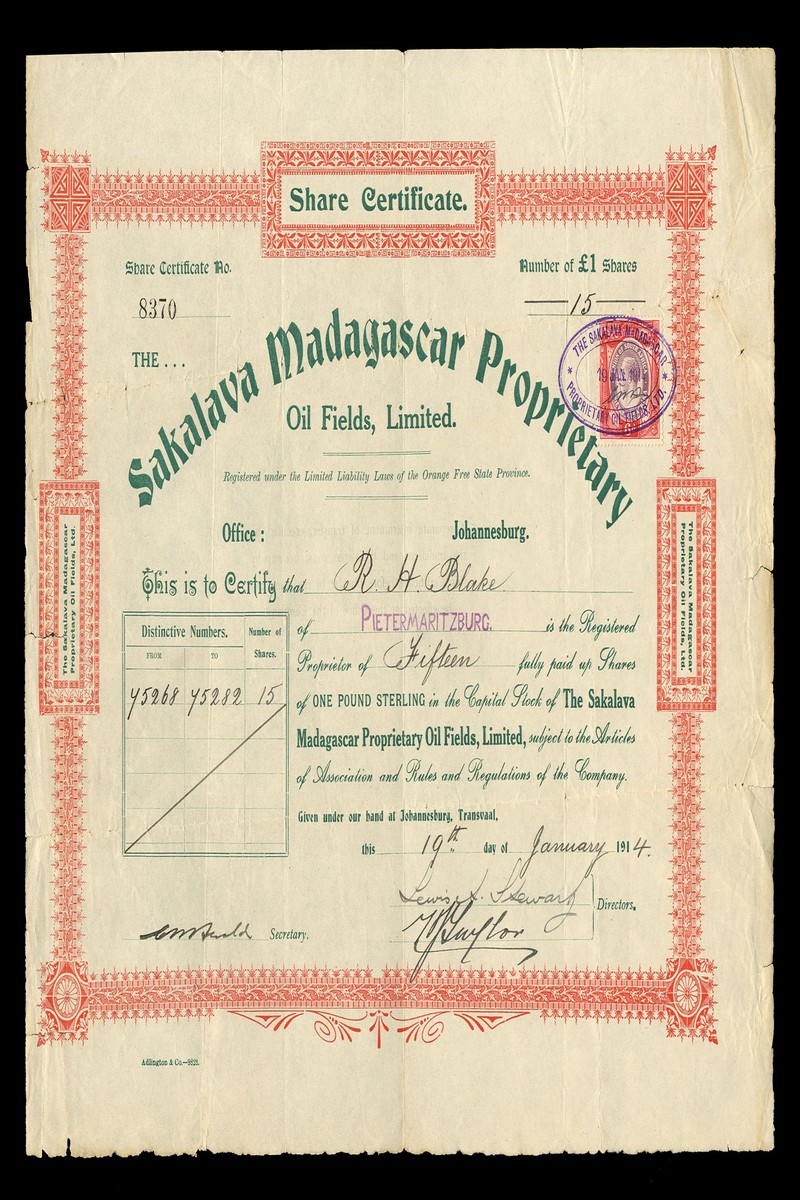 Share Certificate.
Share Certificate No.
8370
Number of £1 Shares
15
THE...
Sakalava Madagascar Proprietary
Oil Fields, Limited.
THE SAKALAVA MADAGASCAR
19 JAN. 1914
PROPRIETARY OIL FIELDS, LTD.
Registered under the Limited Liability Laws of the Orange Free State Province.
Office : Johannesburg.
The Sakalava Madagascar
Proprietary Oil Fields, Ltd.
The Sakalava Madagascar
Proprietary Oil Fields, Ltd.
This is to Certify that R. H. Blake
of PIETERMARITZBURG. is the Registered
Proprietor of Fifteen fully paid up Shares
of ONE POUND STERLING in the Capital Stock of The Sakalava
Madagascar Proprietary Oil Fields, Limited, subject to the Articles
of Association and Rules and Regulations of the Company.
Distinctive Numbers. Number of
FROM TO Shares.
75268 75282 15
Given under our hand at Johannesburg, Transvaal,
this 19th day of January 1914.
Lewis Stewart
Directors.
Taylor
Secretary.
Adlington & Co.—9828.